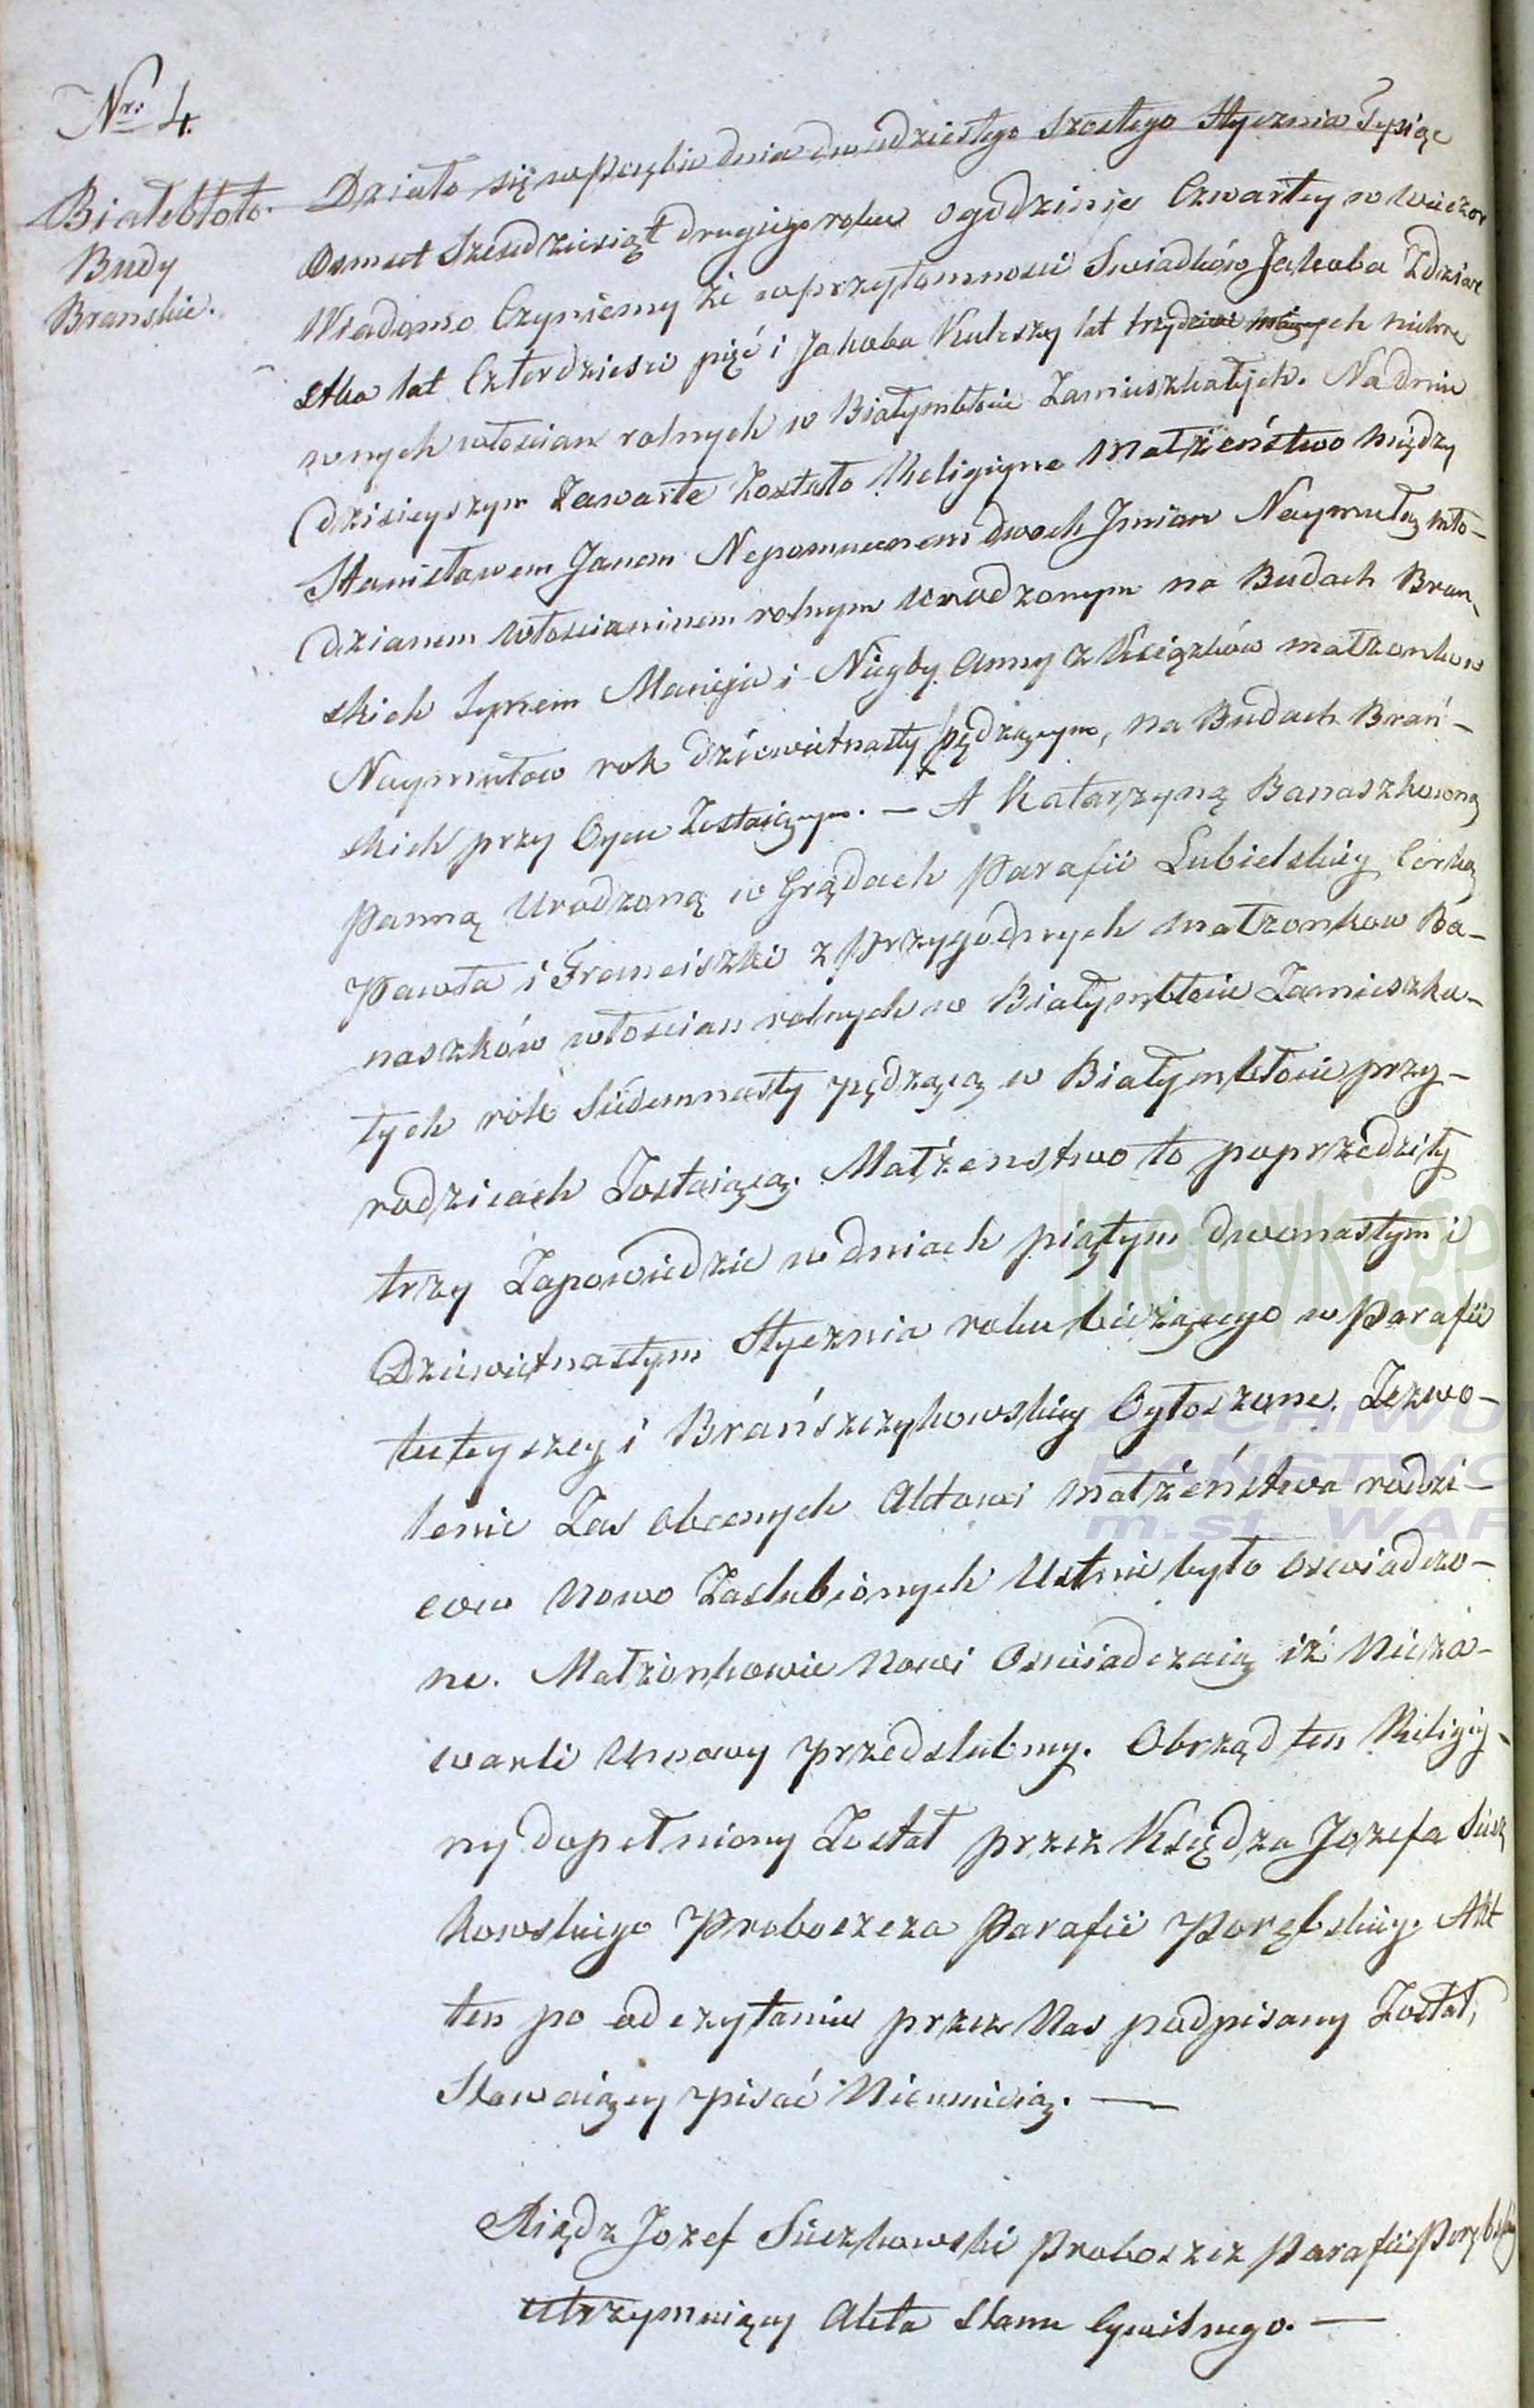 Nr: 4.
Białebłoto.
Budy
Branskie.
Działo się w Porębie dnia dwudziestego szostego Stycznia Tysiąc
Osmset Szesdziesiąt drugiego roku o godzinie Czwartey w wieczor
Wiadomo Czyniemy że w przytomnosci Swiadków Jakoba
lat Czterdziesci pięć i Jakoba Kuleszy lat trzydziesci
włoscian rolnych w Białymbłocie Zamieszkałych. Na dniu
dzisieyszym Zawarte Zostało Religiyne Małżeństwo między
Stanisławem Janem Nepomucenem dwoch Jmion Naymułą mło-
dzianem włoscianinem rolnym Urodzonym na Budach Bran-
skich Synem Macieja i Niegdy Anny z Książków małżonkow
Naymułow rok dziewietnasty pędzącym, na Budach Brań-
skich przy Oycu Zostaiącym. — A Katarzyną Banaszkowną
Panną Urodzoną w Grądach Parafii Lubielskiey Corką
Pawła i Franciszki z Przygodnych Małżonkow Ba-
naszków włoscian rolnych w Białymbłocie Zamieszka-
łych rok Siedemnasty pędzącą w Białymbłocie przy-
rodzicach Zostaiącą. Małżenstwo to poprzedziły
trzy Zapowiedzie w dniach piątym dwonastym i
Dziewietnastym Stycznia roku bieżącego w Parafii
tuteyszey i Brańszczykowskiey Ogłoszone. Zezwo-
lenie Zas obecnych Aktowi Małżeństwa rodzi-
cow Nowo Zaslubionych Ustnie było oswiadczo-
ne. Małżonkowie Nowi Oswiadczaią iż Nieza-
warli Umowy przedslubny. Obrząd ten Religiy-
ny dopełniony Został przez Księdza Jozefa Siecz
kowskiego Proboszcza Parafii Porębskiey. Akt
ten po odczytaniu przez Nas podpisany Został,
Stawaiący pisać Nieumieią. —
Xiądz Jozef Sieczkowski Proboszcz Parafii Porębskiey
utrzymuiący Akta Stanu Cywilnego. —
ARCHIWU
PAŃSTWO
m.st. WAR